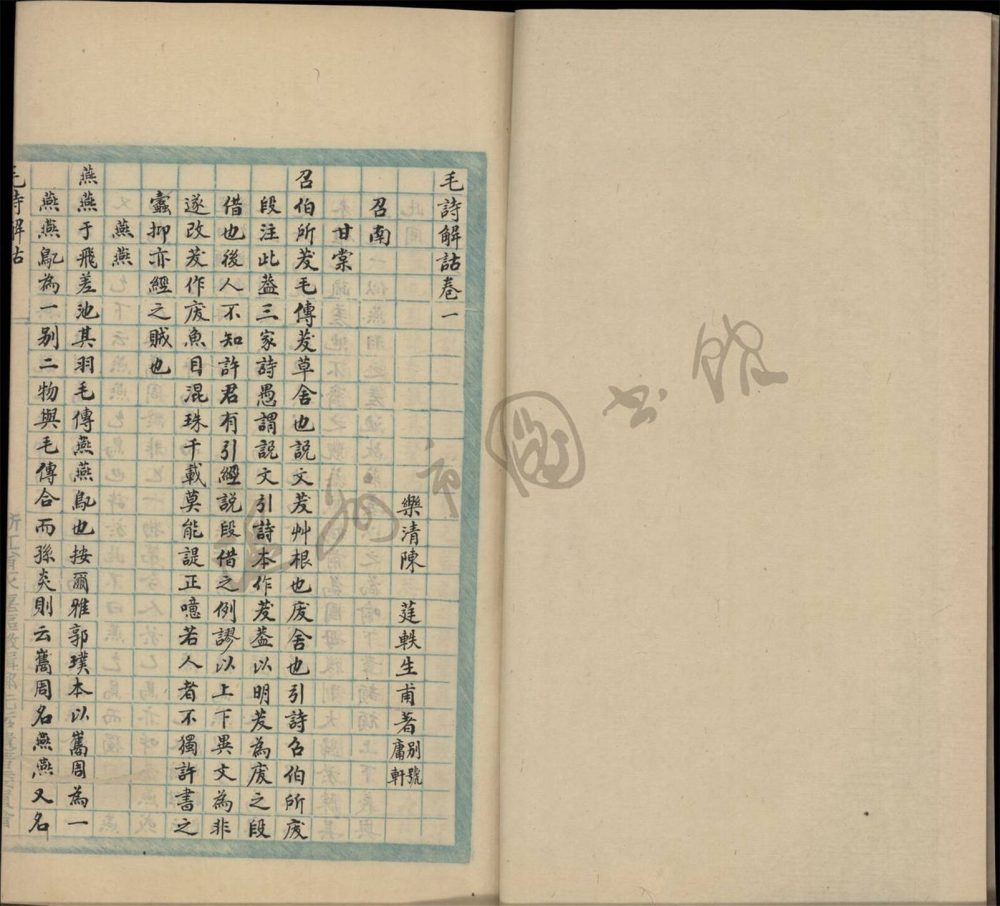 毛詩解詁卷一
樂清陳 莛軼生甫著別號庸軒
召南
甘棠
召伯所茇毛傳茇草舍也說文茇艸根也废舍也引詩召伯所废
段注此葢三家詩愚謂說文引詩本作茇葢以明茇為废之叚
借也後人不知許君有引經說叚借之例謬以上下異文為非
遂改茇作废魚目混珠千載莫能諟正噫若人者不獨許書之
蠹抑亦經之賊也
燕燕
燕燕于飛差池其羽毛傳燕燕鳦也按爾雅郭璞本以巂周為一
燕燕鳦為一别二物與毛傳合而孫炎則云巂周名燕燕又名
毛詩解詁
圖書館